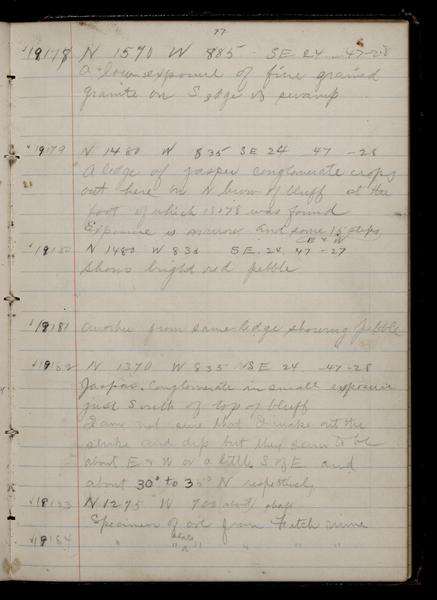 77
19178 N 1570 W 885 SE 24 47-28
A low exposure of fine grained
granite on S edge of swamp
19179 N 1480 W 835 SE 24 47-28
A ledge of jasper conglomerate crops
out here on N brow of bluff at the
foot of which 19178 was found
Exposure is narrow and some 15 steps
E & W
19180 N 1480 W 830 SE. 24. 47-27
shows bright red pebble
19181 Another from same ledge showing pebble
19182 N 1370 W 835 SE 24 -47-28
Jasper. Conglomerate in small exposure
just South of top of bluff
I am not sure that I make out the
strike and dip but they seem to be
about E & W or a little S of E and
about 30° to 35° N respectively
19183 N 1275 W 700 (about) shaft
Specimen of ore from Fitch mine
19184 " slate " " " "